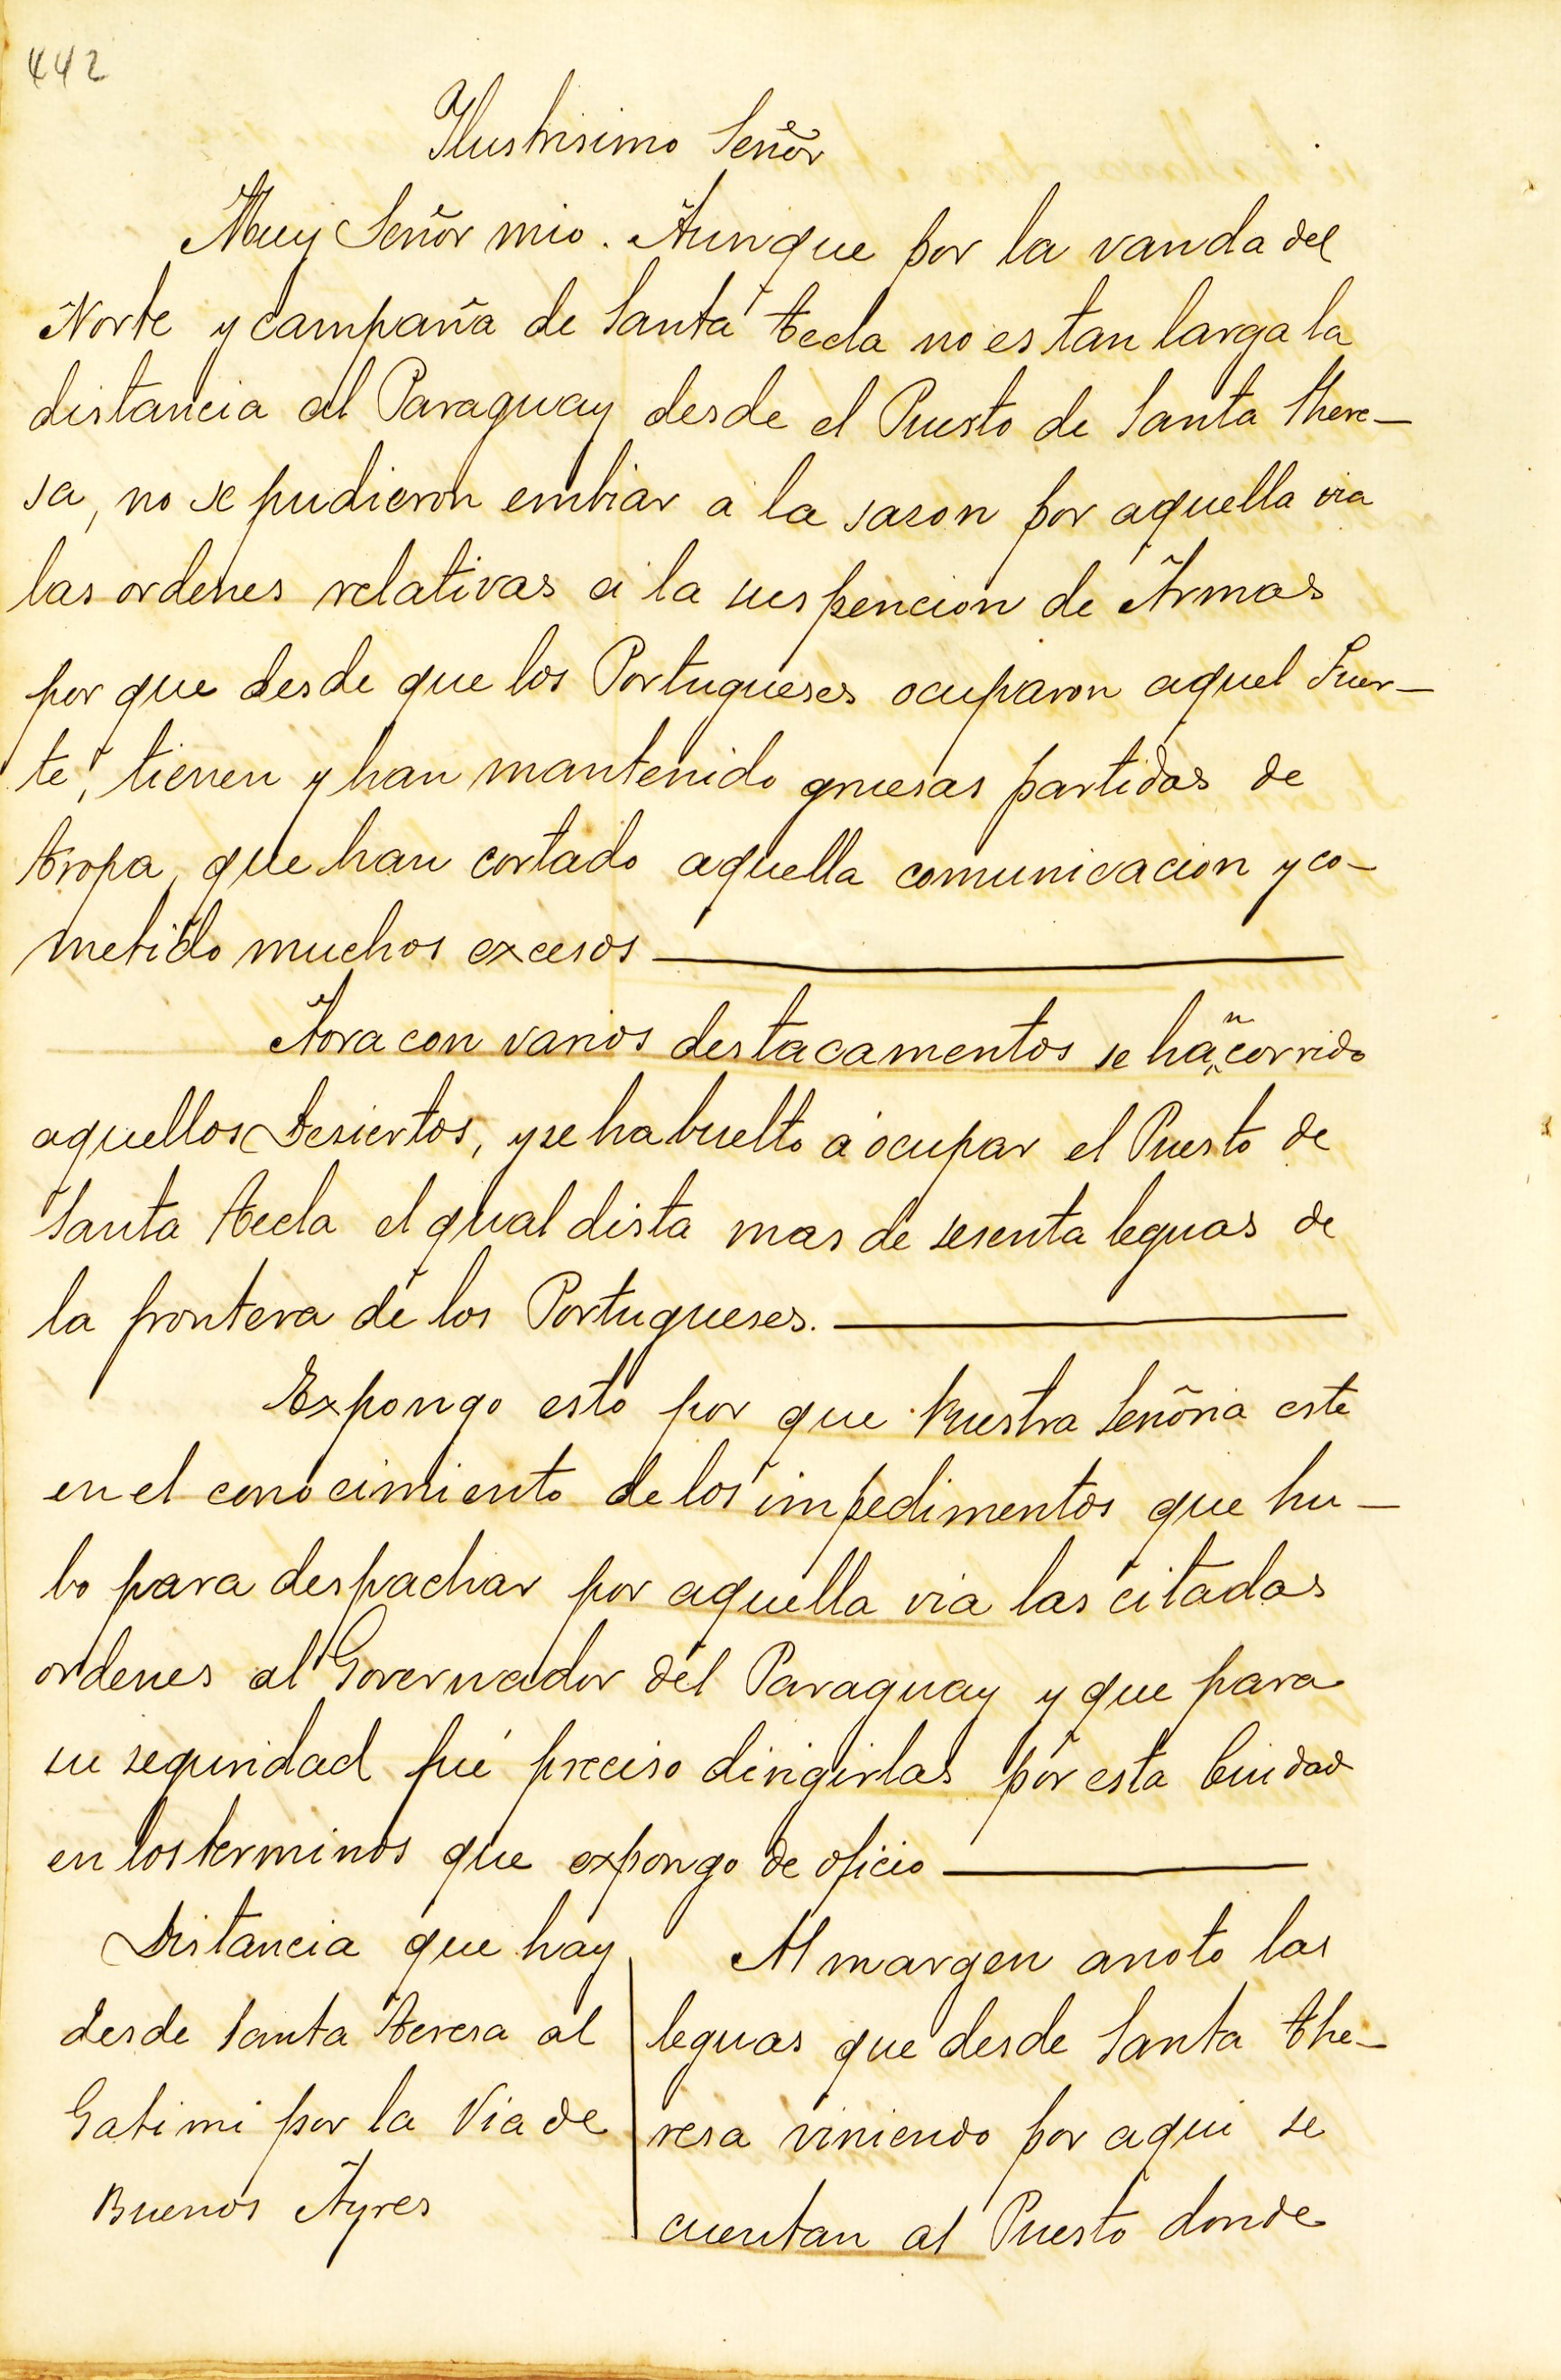 442
Ilustrisimo Señor
Muy Señor mio. Aunque por la vanda del
Norte y campaña de Santa tecla no es tan larga la
distancia al Paraguay desde el Puesto de Santa There-
sa, no se pudieron embiar a la sazon por aquella via
las ordenes relativas a la suspencion de Armas
por que desde que los Portugueses ocuparon aquel Fuer-
te, tienen y han mantenido gruesas partidas de
tropa, que han cortado aquella comunicacion y co-
metido muchos excesos
Aora con varios destacamentos se han corrido
aquellos Desiertos, y se ha buelto a ocupar el Puesto de
Santa tecla el qual dista mas de sesenta leguas de
la frontera de los Portugueses.
Expongo esto por que Vuestra Señoria este
en el conocimiento de los impedimentos que hu-
bo para despachar por aquella via las citadas
ordenes al Governador del Paraguay y que para
su seguridad fué preciso dirigirlas por esta Ciudad
en los terminos que expongo de oficio
Distancia que hay
desde Santa teresa al
Gatimi por la Via de
Buenos Ayres
Al margen anoto las
leguas que desde Santa the-
resa viniendo por aqui se
cuentan al Puesto donde